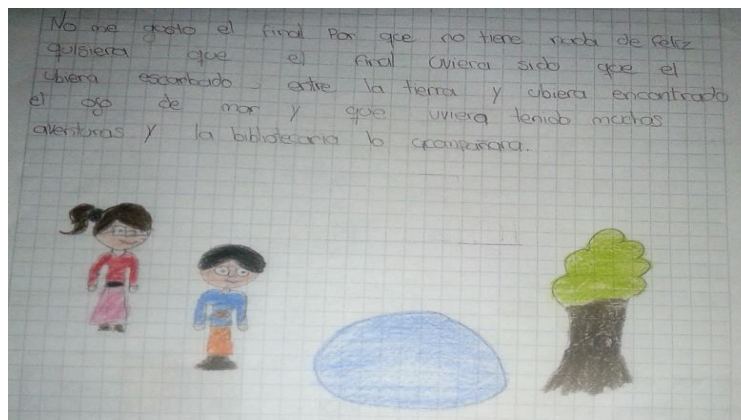 No me gusto el final Por que no tiene nada de Feliz
quisiera que el final uviera sido que el
ubiera escarbado entre la tierra y ubiera encontrado
el ojo de mar y que uviera tenido muchas
aventuras y la bibliotecaria lo acompañara.